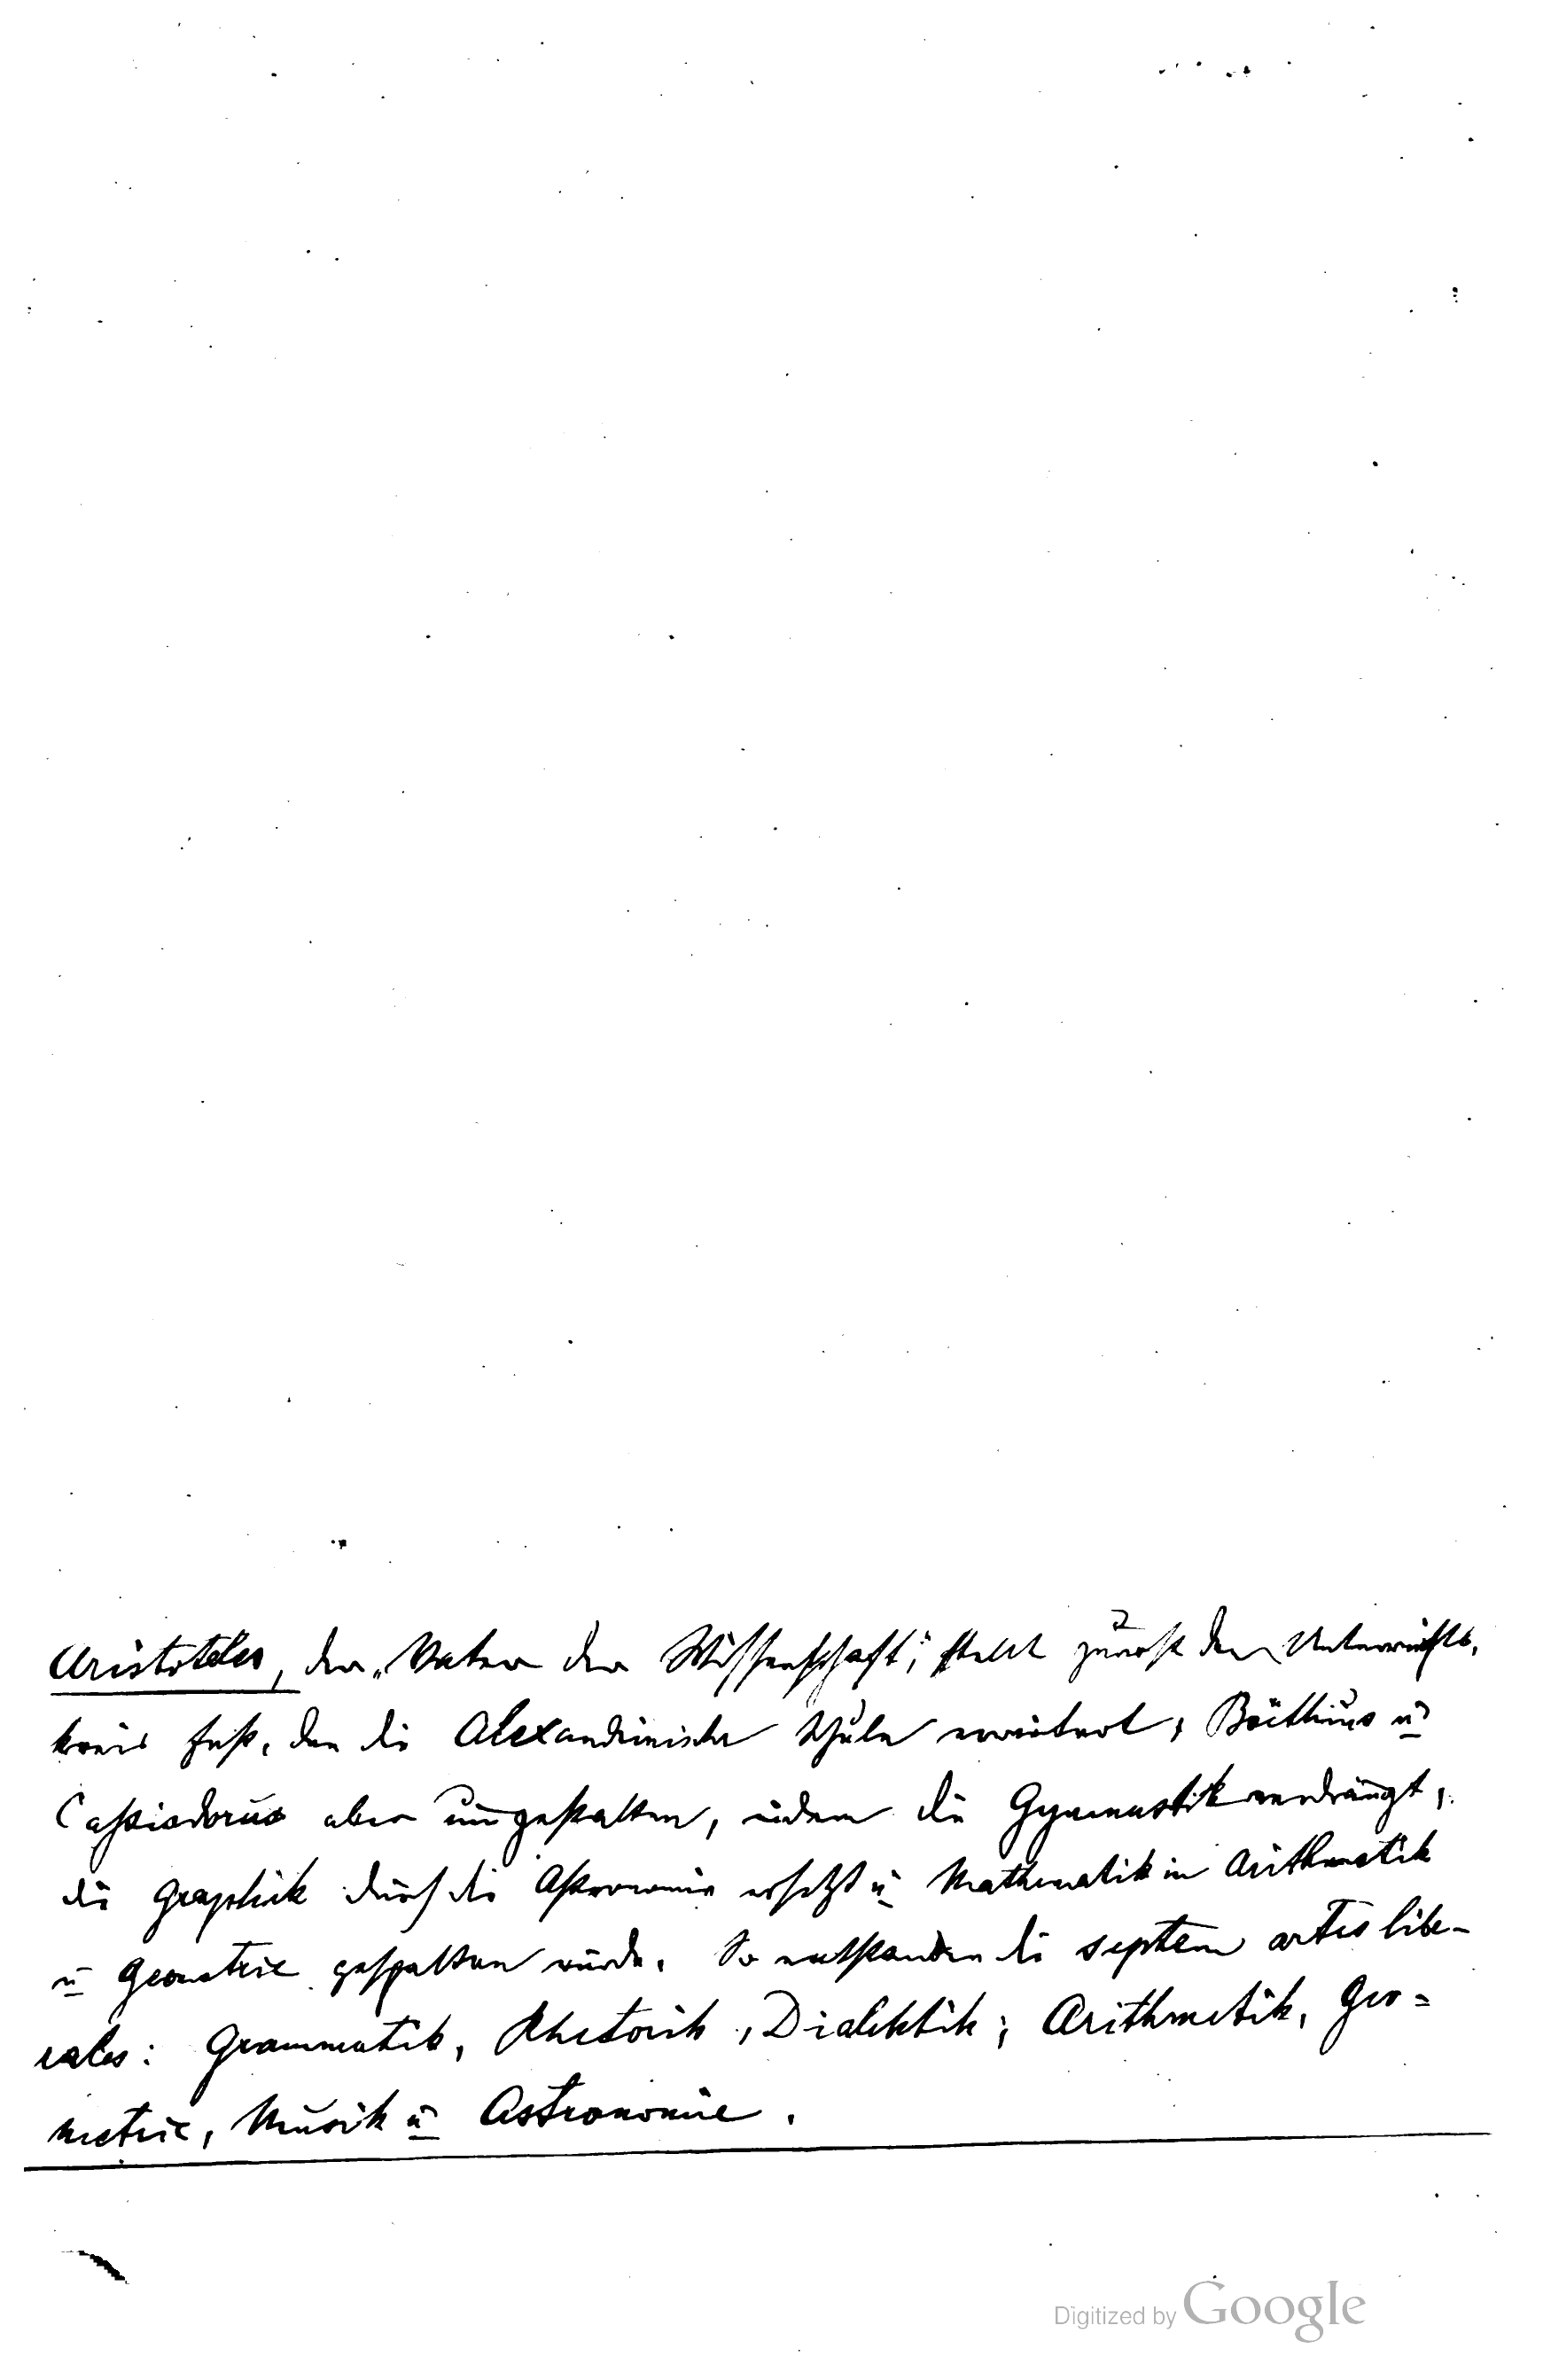 Aristoteles, der „Vater der Wissenschaft“, stellt zuerst den Unterrichts-
kreis fest, den die Alexandrinische Schule erweitert, Boëthius u
Cassiodorus aber umgestalten, indem die Gymnastik verdrängt,
die Graphik durch die Astronomie ersetzt u Mathematik in Arithmetik
u Geometrie gespalten wurde. So entstanden die septem artes libe-
rales: Grammatik, Rhetorik, Dialektik; Arithmetik, Geo=
metrie, Musik u Astronomie.
Digitized by Google